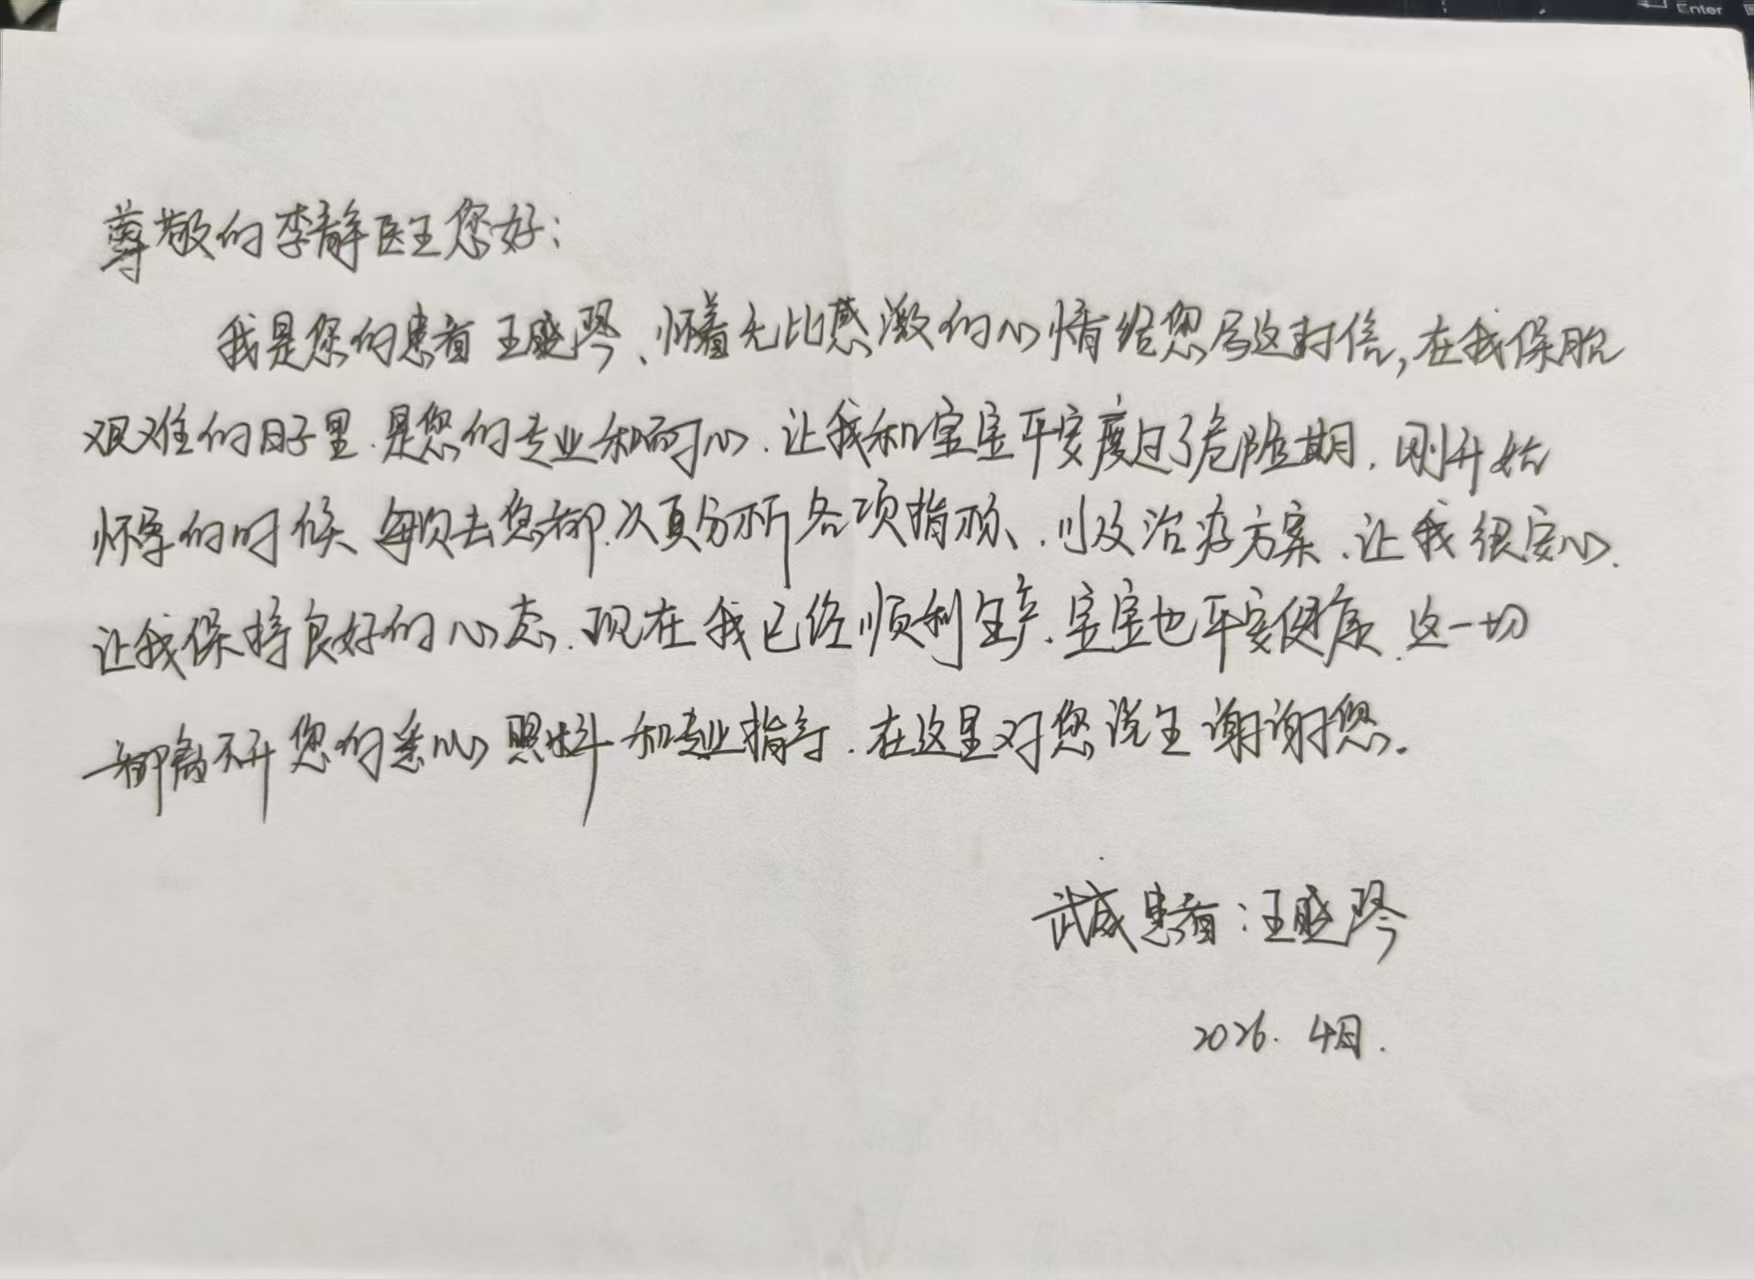 Enter
尊敬的李静医生您好：
我是您的患者王晓琴、怀着无比感激的心情给您写这封信，在我保胎
艰难的日子里.是您的专业和耐心.让我和宝宝平安度过了危险期.刚开始
怀孕的时候 每次去您都.认真分析各项指标、.以及治疗方案.让我很安心.
让我保持良好的心态.现在我已经顺利生产.宝宝也平安健康.这一切
都离不开您的悉心照料和专业指导.在这里对您说上谢谢您。
患者：王晓琴
2026.4月.